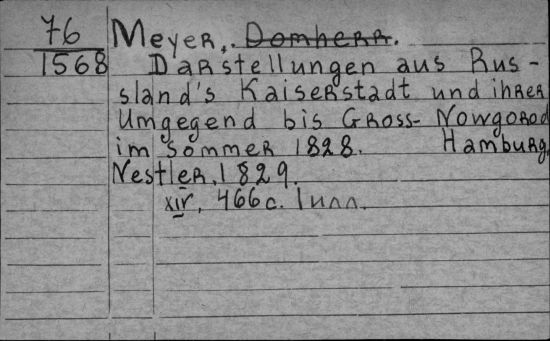 76 Meyer,. Domherr.
1568 Darstellungen aus Rus-
sland's Kaiserstadt und ihrer
Umgegend bis Gross-Nowgorod
im Sommer 1828. Hamburg,
Nestler, 1829.
XIV, 466 c. 1 илл.